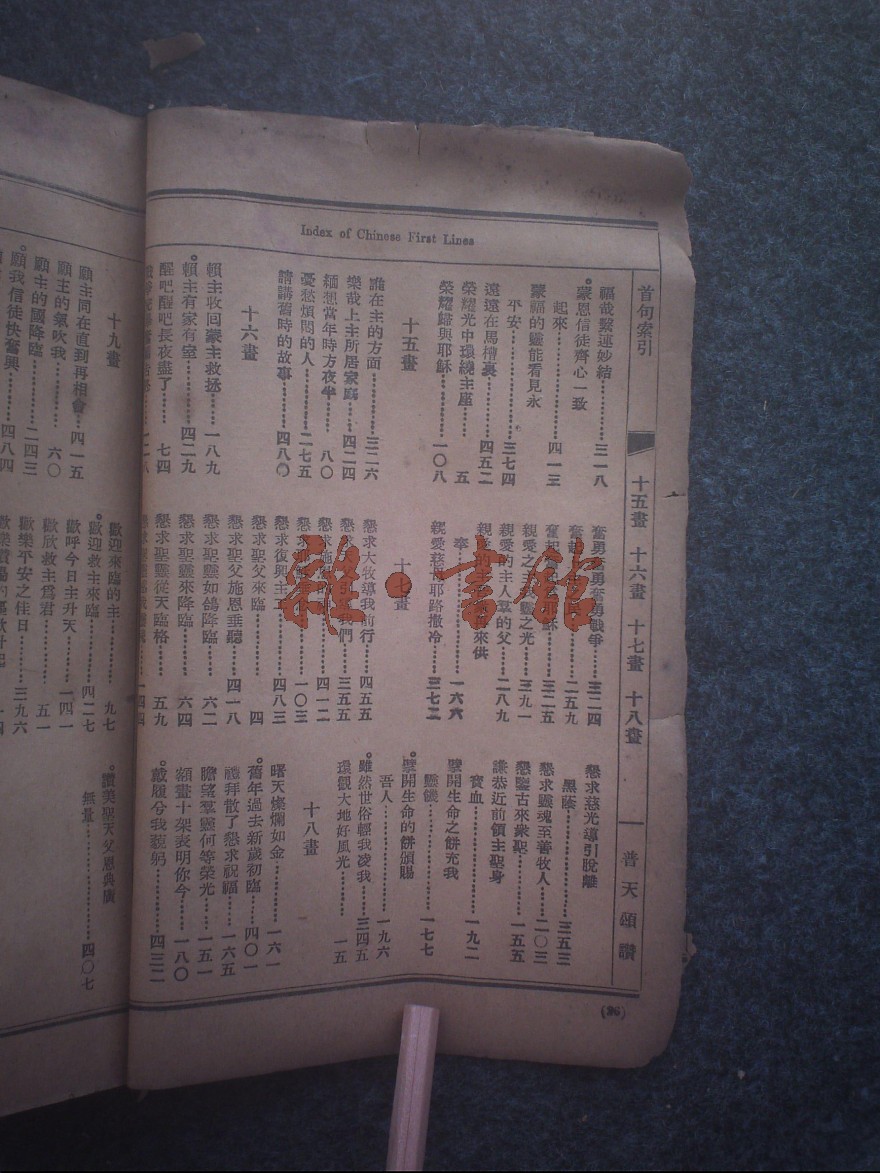 Index of Chinese First Lines
首句索引
十五畫 十六畫 十七畫 十八畫
普天頌讚
(26)
福哉繫連妙結………三一八
。蒙恩信徒齊心一致
起來…………四一三
蒙福的靈能看見永
平安…………三七四
遠遠在馬槽裏………四五二
榮耀光中環繞主座……五
榮耀歸與耶穌………一〇八
十五畫
誰在主的方面………三二六
樂哉上主所居家庭……四二四
緬想當年時方夜半……八〇
憂愁煩悶的人………二七五
請講舊時的故事………四八〇
十六畫
賴主收回蒙主救拯……一八九
。賴主有家有室………四二九
醒吧醒吧長夜盡了……七四
奮勇奮勇奮勇戰爭……三二四
奮起…………二五九
三二五
親愛之主靈之光………三九一
親愛的主人羣的父……二八九
來供
奉…………一六六
親愛慈耶路撒冷……三七二
十七畫
懇求大牧導我前行……四五五
們………三五五
四一二
一〇三
懇求復興主………四八三
懇求聖父來臨………四
懇求聖父施恩垂聽……四一八
懇求聖靈如鴿降臨……六二
懇求聖靈來降臨………六四
懇求聖靈從天臨格……五九
四四
懇求慈光導引脫離
黑蔭…………三五三
懇求靈魂至善收人……二〇三
懇鑒古來衆聖………一五五
謙恭近前領主聖身
寶血…………一九二
擘開生命之餅充我
靈饑…………一七七
。擘開生命的餅頒賜
吾人…………一九六
。雖然世俗輕我凌我……三四五
環觀大地好風光………一五
十八畫
曙天燦爛如金………一六一
。舊年過去新歲初臨……四〇一
禮拜散了懇求祝福……一六五
瞻望羣靈何等榮光……一五一
額畫十架表明你今……一八〇
。戴履兮我藐躬………四三二
十九畫
願主同在直到再相會…四一五
願主的氣吹我………六〇
願主的國降臨………二四三
。願我信徒快奮興………四八四
歡迎來臨的主………九七
。歡迎救主來臨………四二七
歡呼今日主升天………一四一
歡欣救主爲君………五一
歡樂平安之佳日………三九六
。讚美聖天父恩典廣
無量…………四〇七
雜·書館